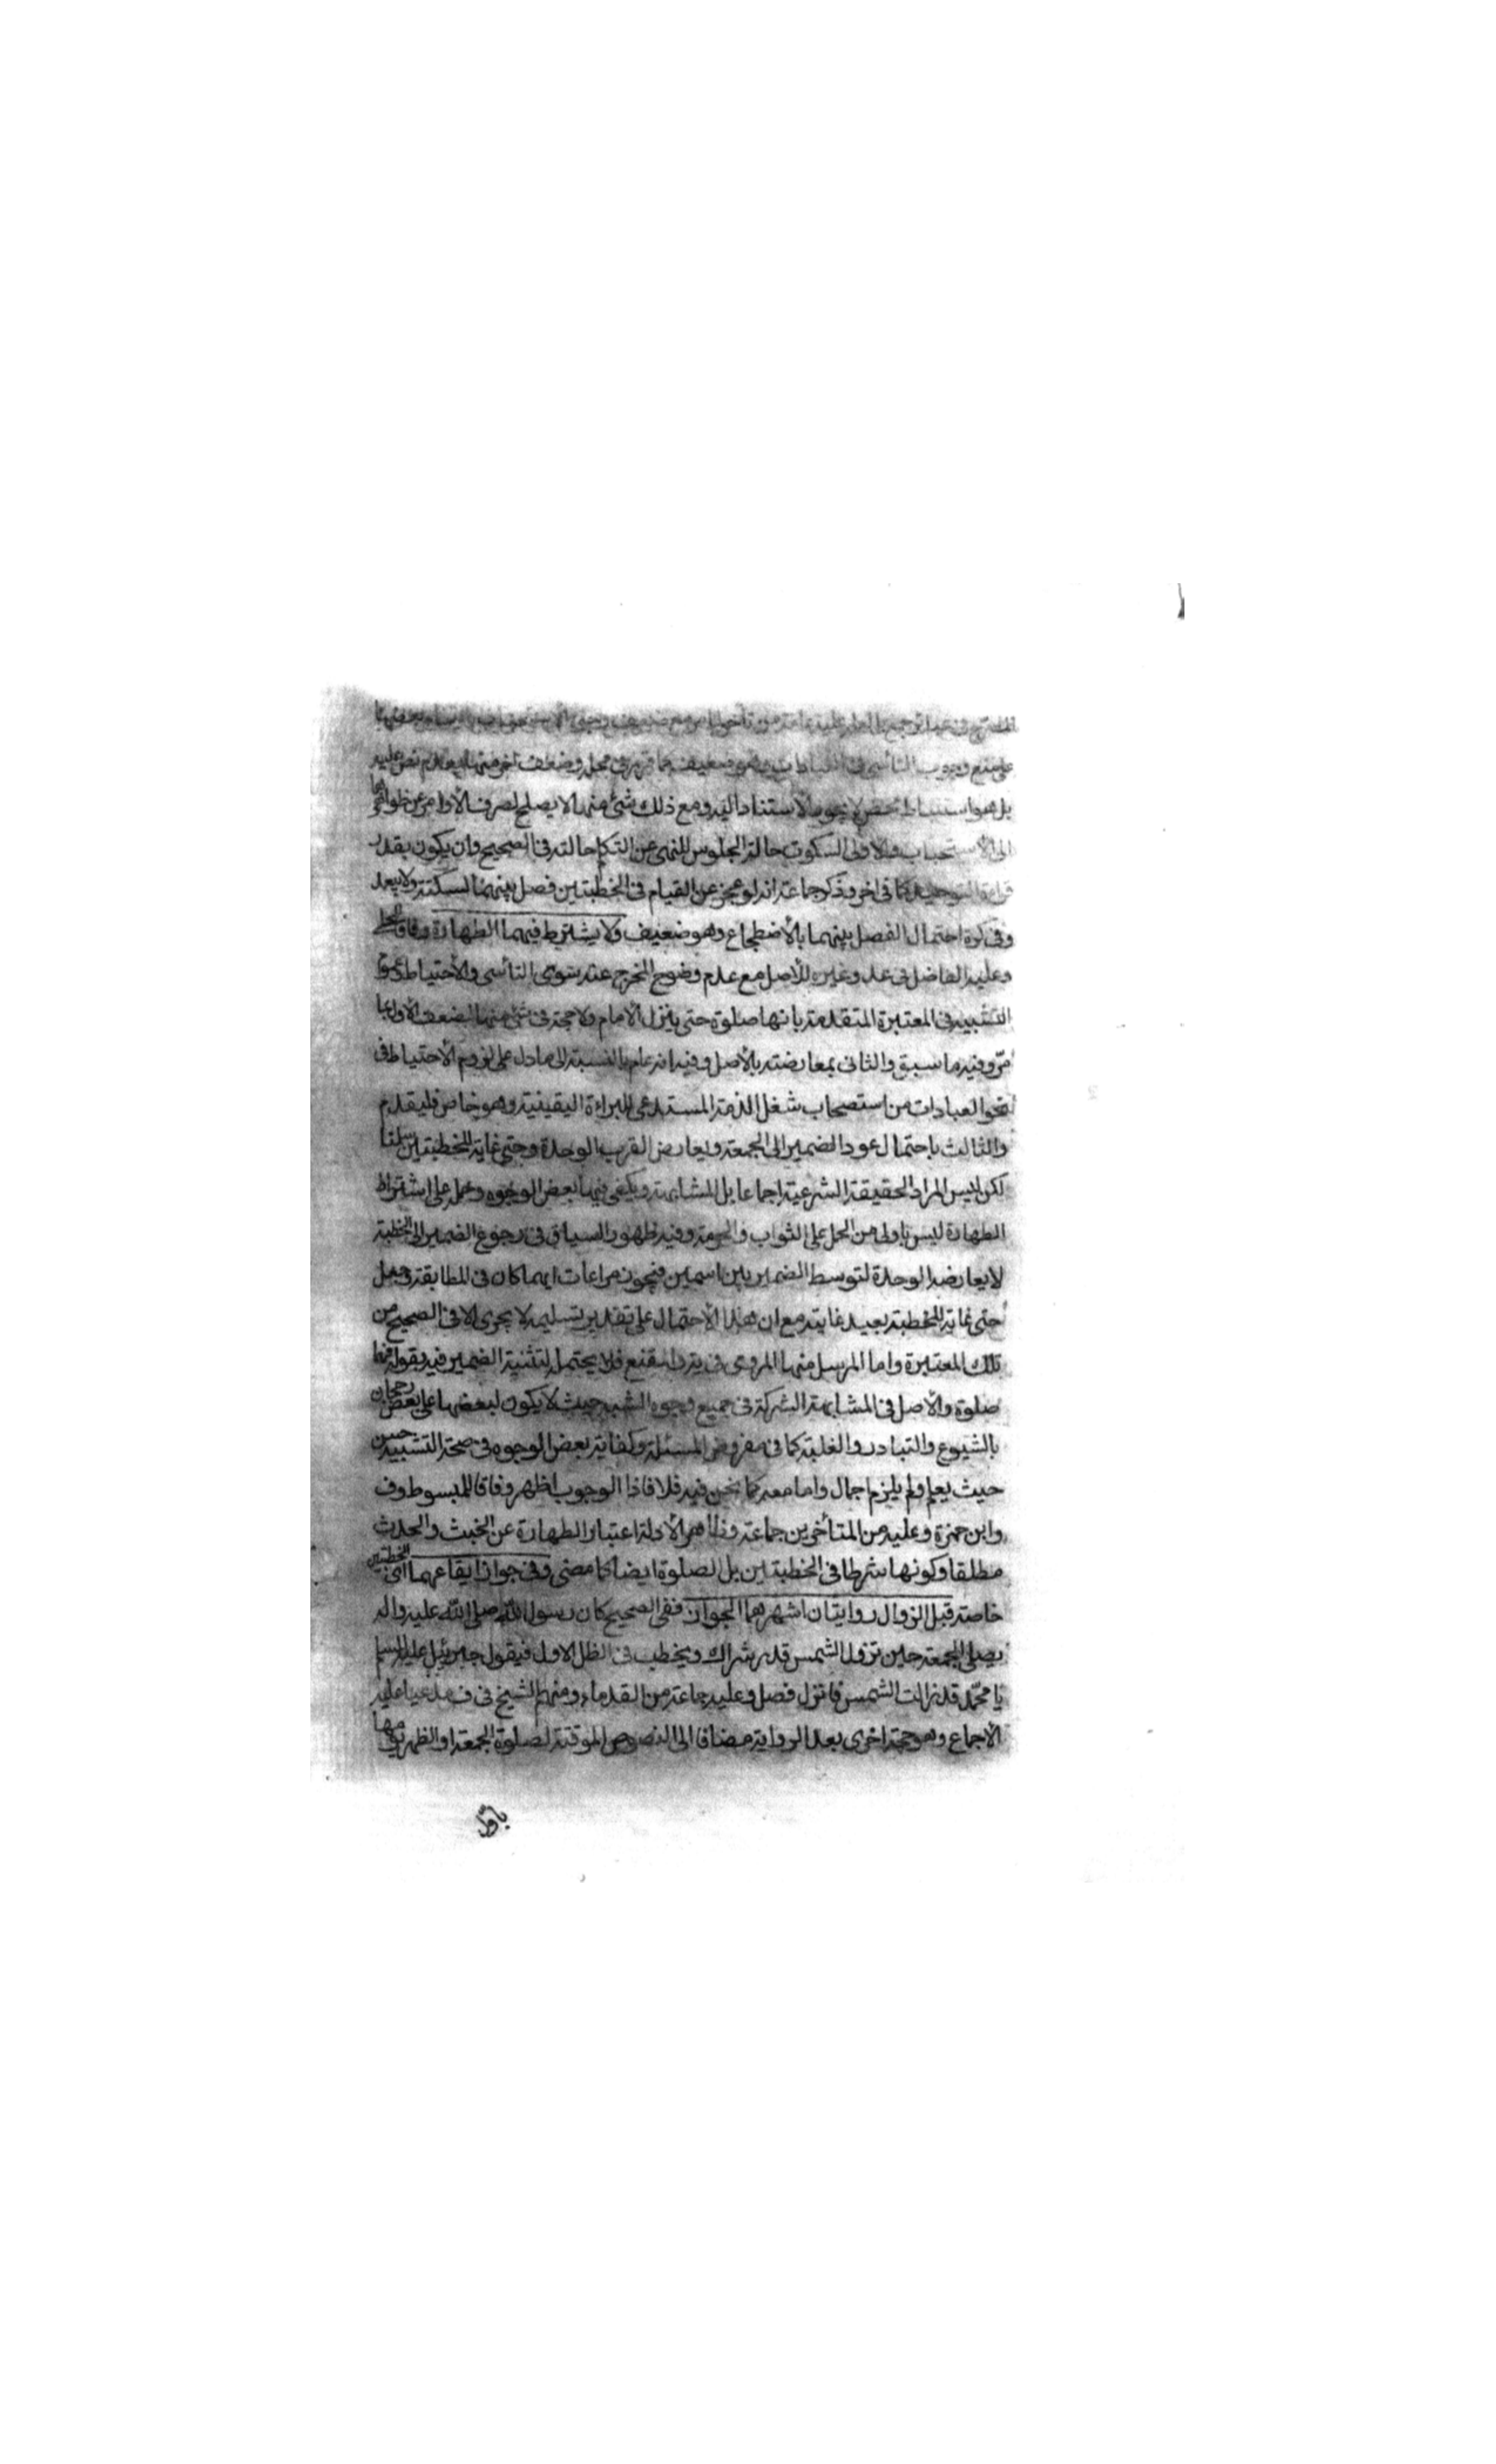 على منع وجوب التأسي في العبادات وهو ضعيف كما قرر في محله وضعف اخر منها بعدم نص عليه
بل هو استنباط محض لا يجوز الاستناد اليه ومع ذلك شئ منها لا يصلح لصرف الأوامر عن ظواهرها
الى الاستحباب والاولى السكوت حالة الجلوس للنهى عن التكلم حالته في الصحيح وان يكون بقدر
قراءة التوحيد كما في اخر وذكر جماعة انه لو عجز عن القيام في الخطبتين فصل بينهما بسكتة ولا يبعد
وفي كرة احتمال الفصل بينهما بالأضطجاع وهو ضعيف ولا يشترط فيهما الطهارة وفاقا للحلى
وعليه الفاضل في عد وغيره للأصل مع عدم وضوح المخرج عنه سوى التأسى والأحتياط وعموم
التشبيه في المعتبرة المتقدمة بانها صلوة حتى ينزل الأمام ولا حجة في شئ منها لضعف الأول بما
مرّ وفيه ما سبق والثانى بمعارضته بالأصل وفيه انه عام بالنسبة الى ما دل على لزوم الأحتياط في
نحو العبادات من استصحاب شغل الذمة المستدعى للبراءة اليقينية وهو خاص فليقدم
والثالث باحتمال عود الضمير الى الجمعة ويعارض القرب الوحدة وحتى غاية للخطبتين سلمنا
لكن ليس المراد الحقيقة الشرعية اجماعا بل المشابهة ويكفى فيها بعض الوجوه وحمله على اشتراط
الطهارة ليس باولى من الحمل على الثواب والحرمة وفيه ظهور السياق في رجوع الضمير الى الخطبة
لا يعارضه الوحدة لتوسط الضمير بين اسمين فيجوز مراعات ايهما كان في المطابقة وجعل
حتى غاية للخطبة بعيد غايته مع ان هذا الأحتمال على تقدير تسليمه لا يجرى الا في الصحيح من
تلك المعتبرة واما المرسل منها المروى في يه والمقنع فلا يحتمله لتثنية الضمير فيه بقوله فهما
صلوة والأصل في المشابهة الشركة في جميع وجوه الشبه حيث لا يكون لبعضها على بعض رجحان
بالشيوع والتبادر والغلبة كما في مفروض المسئلة وكفاية بعض الوجوه في صحة التشبيه حسن
حيث يعلم ولم يلزم اجمال واما معه كما نحن فيه فلا فاذا الوجوب اظهر وفاقا للمبسوط وف
وابن حمزة وعليه من المتأخرين جماعة وظاهر الأدلة اعتبار الطهارة عن الخبث والحدث
مطلقا وكونها شرطا في الخطبتين بل لصلوة ايضا كما مضى وفي جواز ايقاعهما اى الخطبتين
خاصة قبل الزوال روايتان اشهرهما الجواز ففى الصحيح كان رسول الله صلى الله عليه واله
يصلى الجمعة حين تزول الشمس قدر شراك ويخطب في الظل الاول فيقول جبرئيل عليه السلام
يا محمّد قد زالت الشمس فانزل فصل وعليه جماعة من القدماء ومنهم الشيخ في ف مدعيا عليه
الأجماع وهو حجة اخرى بعد الرواية مضافا الى النصوص الموقتة لصلوة الجمعة او الظهر يومها
باول